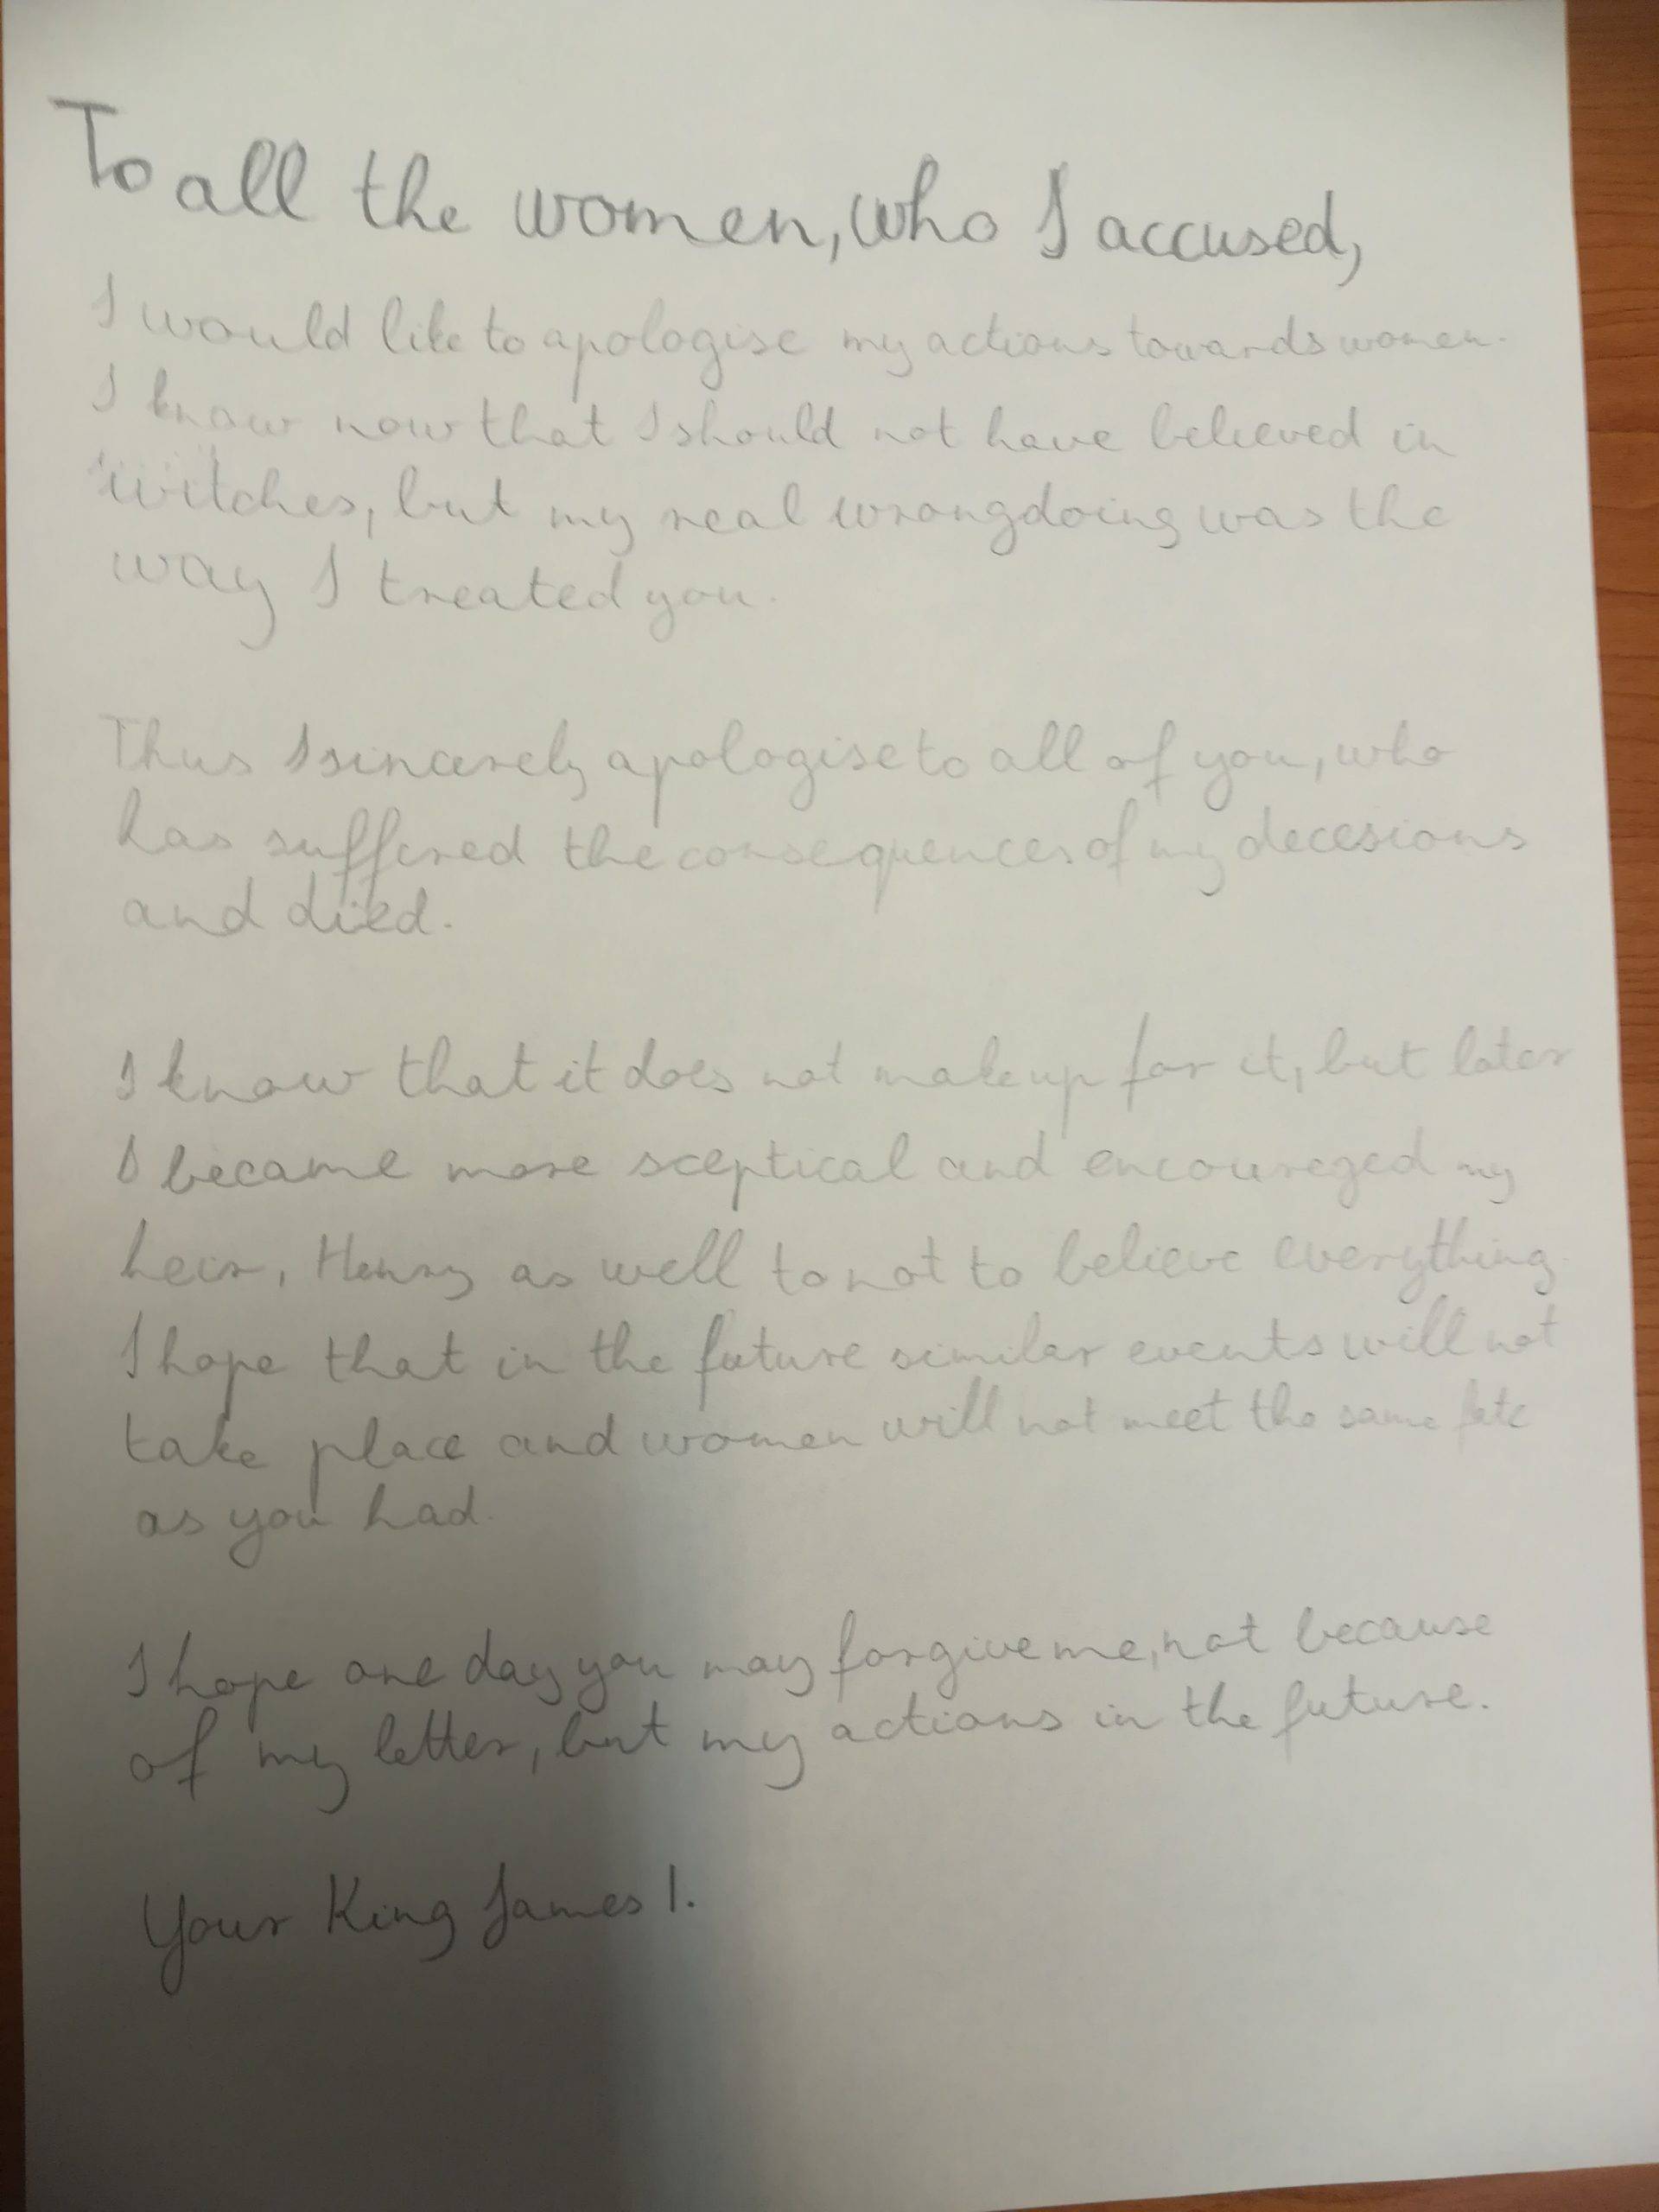 To all the women, who I accused,
I would like to apologise my actions towards women.
I know now that I should not have believed in
witches, but my real wrongdoing was the
way I treated you.
Thus I sincerely apologise to all of you, who
has suffered the consequences of my decesions
and died.
I know that it does not make up for it, but later
I became more sceptical and encoureged my
heir, Henry as well to not to believe everything.
I hope that in the future similar events will not
take place and women will not meet the same fate
as you had.
I hope one day you may forgive me, not because
of my letter, but my actions in the future.
Your King James I.